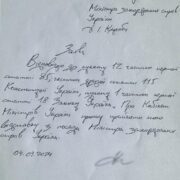 Міністр закордонних справ
України
Д.І. Кулеба
Заява
Відповідно до пункту 12 частини першої
статті 85, частини другої статті 115
Конституції України, пункту 1 частини першої
статті 18 Закону України "Про Кабінет
Міністрів України" прошу прийняти мою
відставку з посади Міністра закордонних
справ України.
04.09.2024